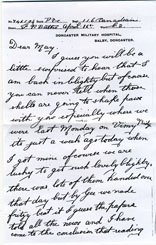 DONCASTER MILITARY HOSPITAL,
BALBY, DONCASTER.
Dear May,
I guess you will be a
little surprised to hear that I
am back in blighty but of course
you can never tell when those
shells are going to shake hands
with you especially when we
were last Monday on Vimy Ridge
its just a week ago today when
I got mine of course we are
lucky to get out lovely blighty,
there was lots of them handed out
that day but by gee we made
fritz but I guess the papers
told all the news and I have
come to the conclusion that reading